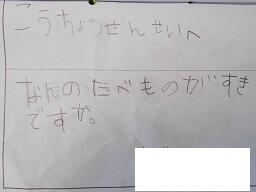 こうちょうせんせいへ
なんのたべものがすき
ですか。